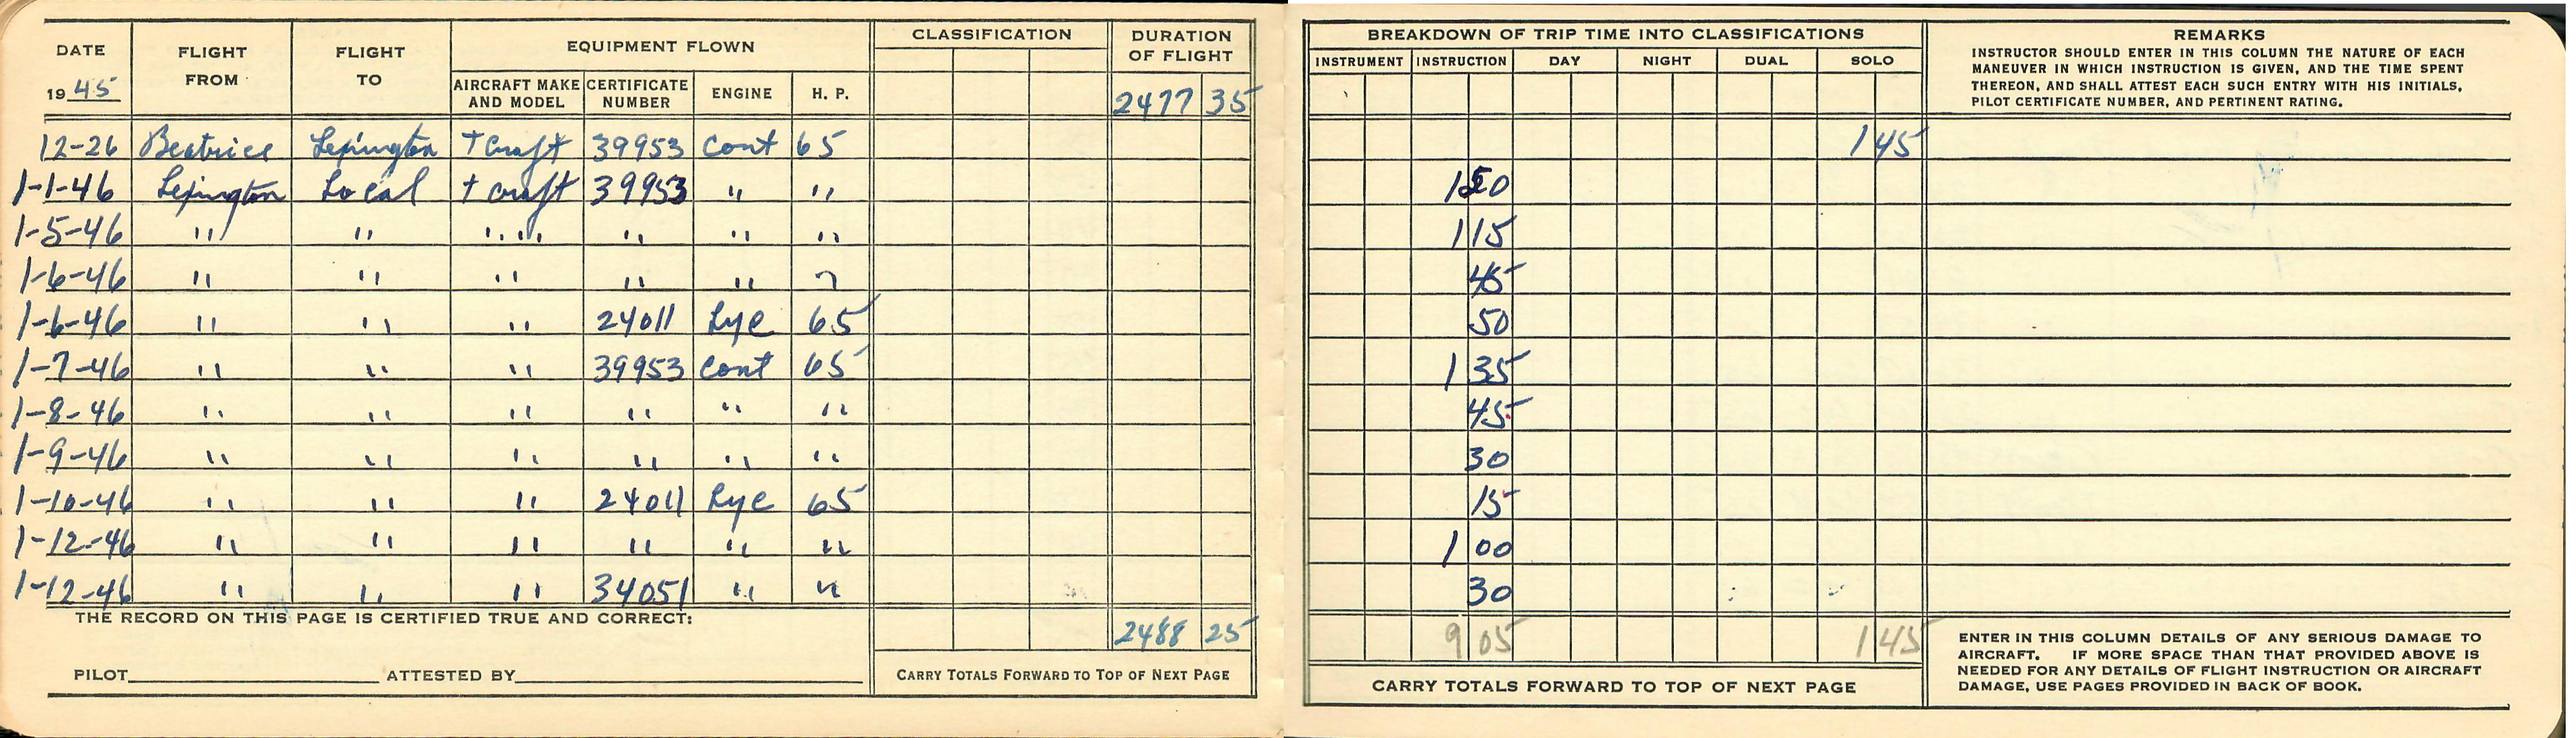 DATE FLIGHT FROM FLIGHT TO EQUIPMENT FLOWN CLASSIFICATION DURATION OF FLIGHT
1945 AIRCRAFT MAKE AND MODEL CERTIFICATE NUMBER ENGINE H. P. 2477 35
12-26 Beatrice Lexington T Craft 39953 Cont 65
1-1-46 Lexington Local T craft 39953 " "
1-5-46 " " " " " " "
1-6-46 " " " " " "
1-6-46 " " " 24011 Lyc 65
1-7-46 " " " 39953 Cont 65
1-8-46 " " " " " "
1-9-46 " " " " " "
1-10-46 " " " 24011 Lyc 65
1-12-46 " " " " " "
1-12-46 " " " 34051 " "
THE RECORD ON THIS PAGE IS CERTIFIED TRUE AND CORRECT: 2488 25
PILOT ATTESTED BY CARRY TOTALS FORWARD TO TOP OF NEXT PAGE
BREAKDOWN OF TRIP TIME INTO CLASSIFICATIONS
INSTRUMENT INSTRUCTION DAY NIGHT DUAL SOLO
REMARKS
INSTRUCTOR SHOULD ENTER IN THIS COLUMN THE NATURE OF EACH
MANEUVER IN WHICH INSTRUCTION IS GIVEN, AND THE TIME SPENT
THEREON, AND SHALL ATTEST EACH SUCH ENTRY WITH HIS INITIALS,
PILOT CERTIFICATE NUMBER, AND PERTINENT RATING.
1 45
1
1 15
45
50
1 35
45
30
15
1 00
30
9 05 1 45
CARRY TOTALS FORWARD TO TOP OF NEXT PAGE
ENTER IN THIS COLUMN DETAILS OF ANY SERIOUS DAMAGE TO
AIRCRAFT. IF MORE SPACE THAN THAT PROVIDED ABOVE IS
NEEDED FOR ANY DETAILS OF FLIGHT INSTRUCTION OR AIRCRAFT
DAMAGE, USE PAGES PROVIDED IN BACK OF BOOK.